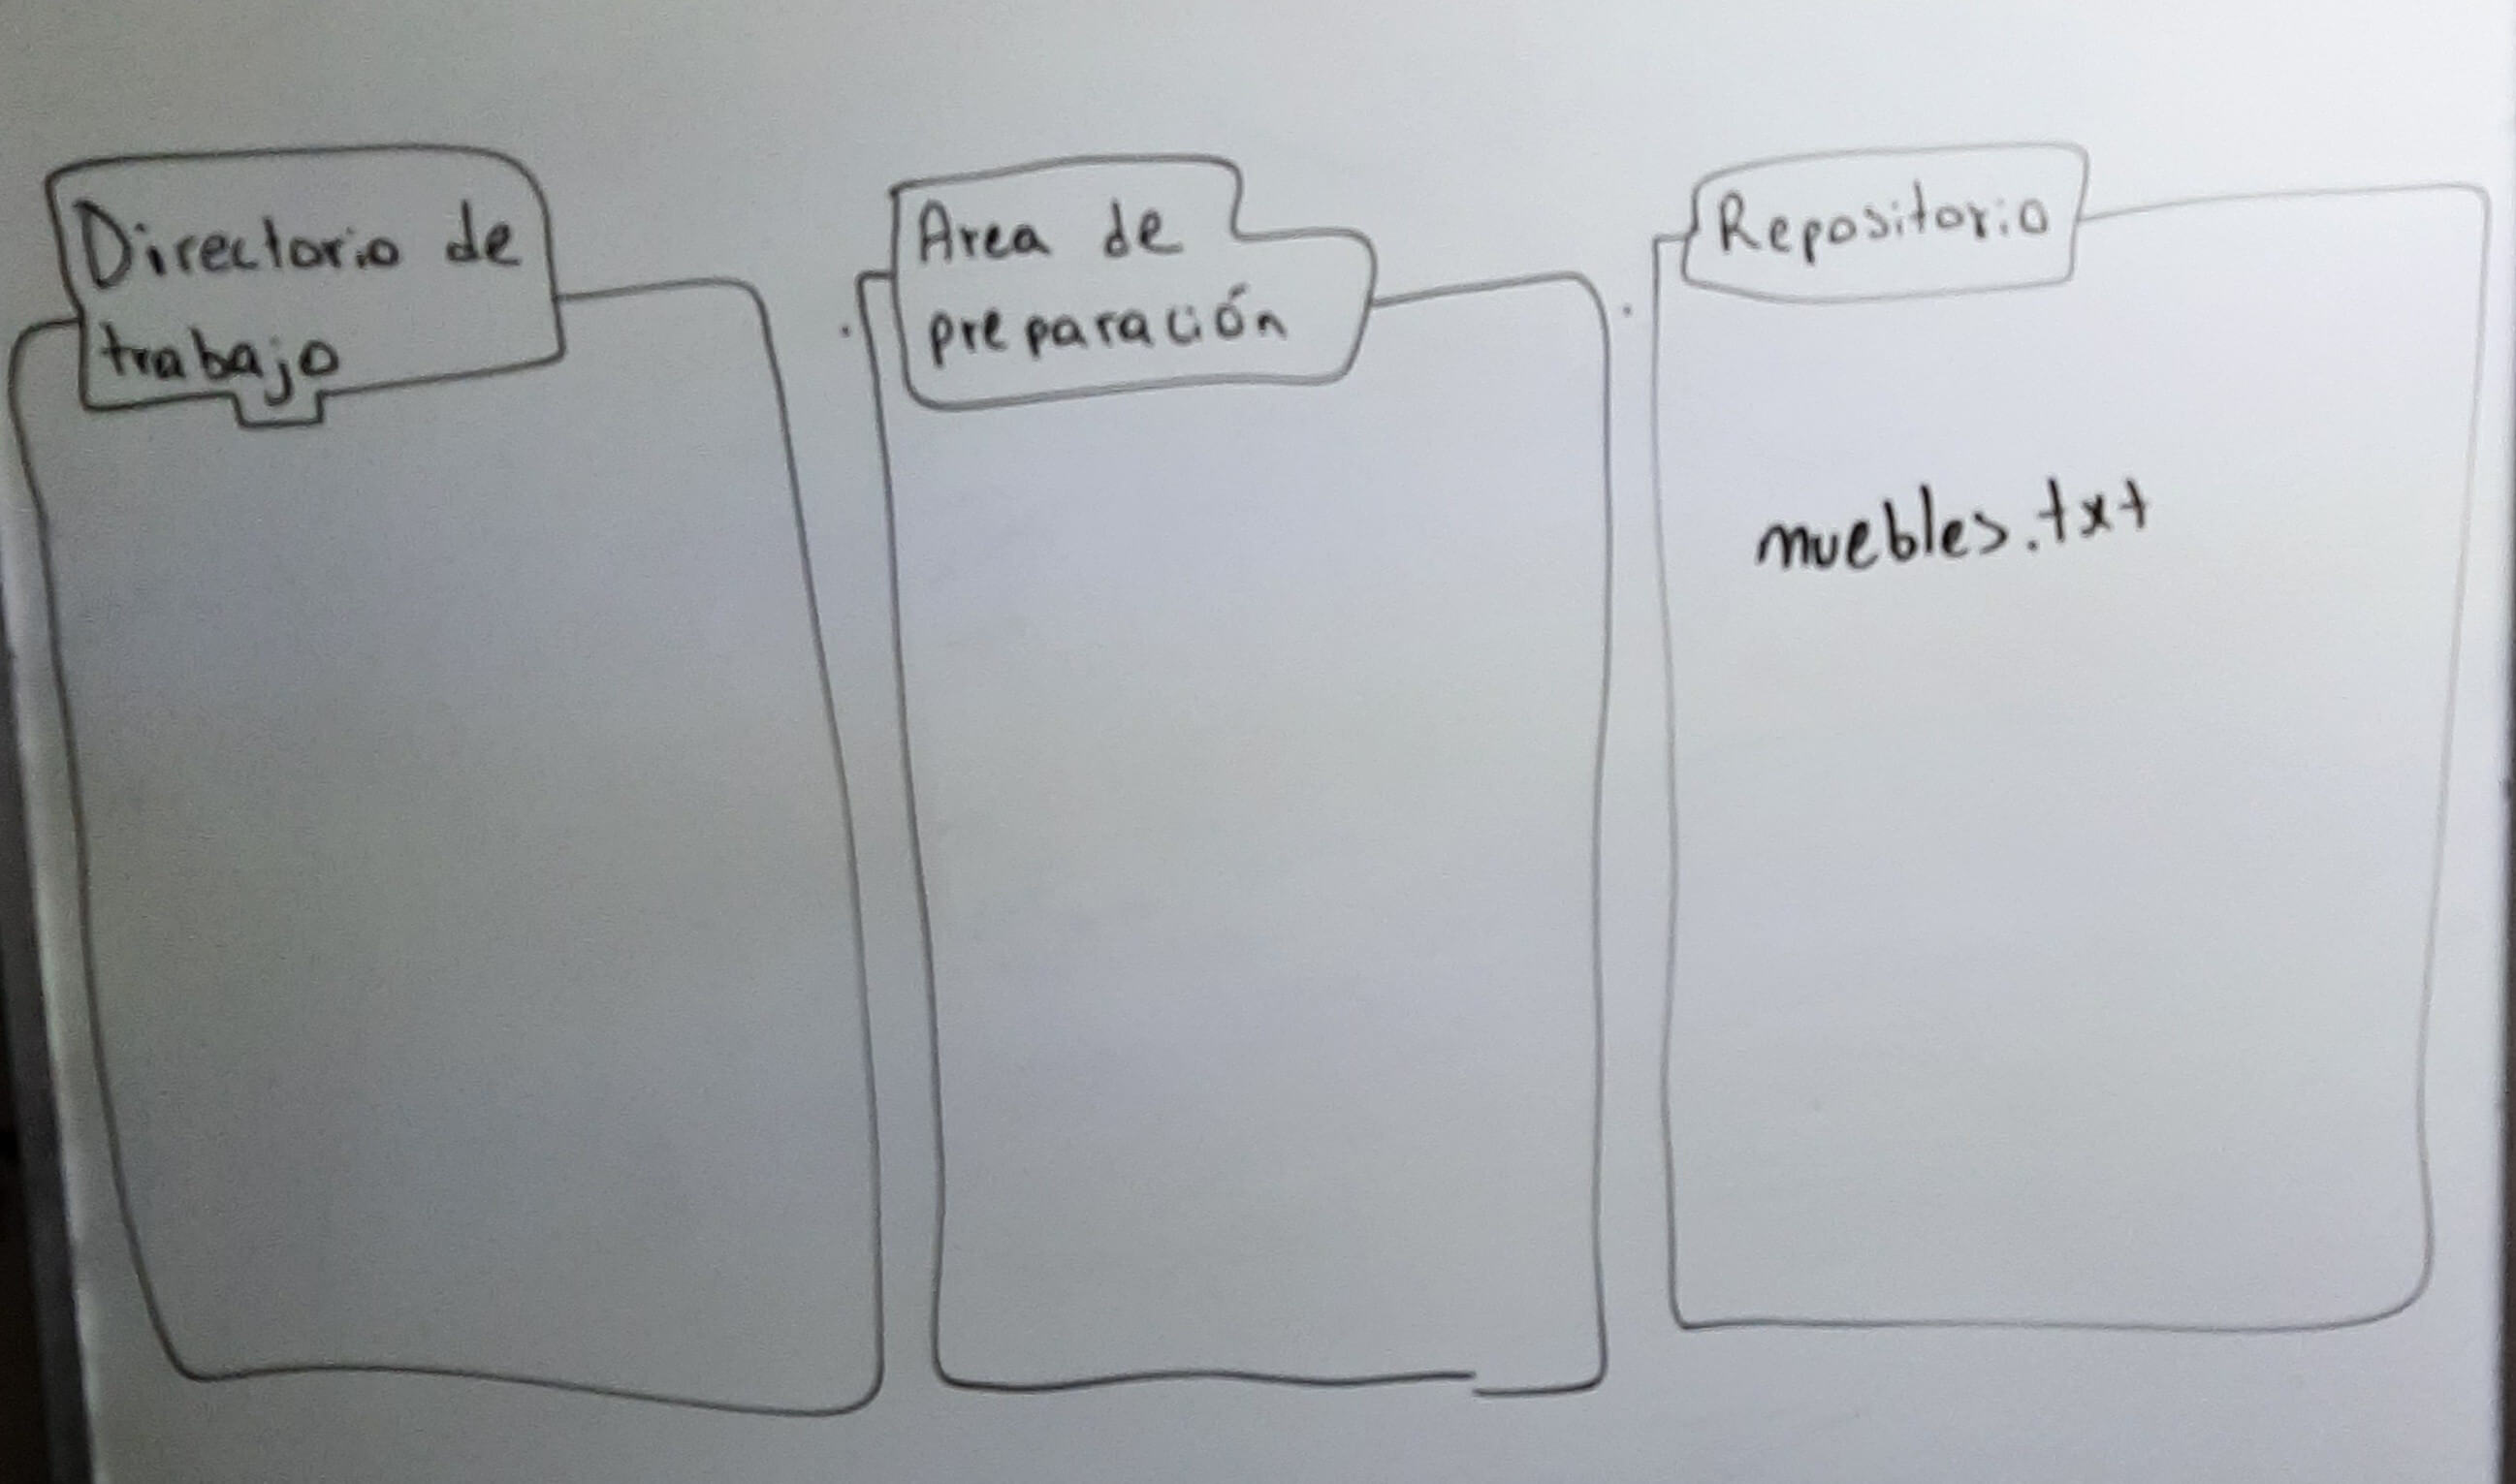 Directorio de
trabajo
Area de
preparación
Repositorio
muebles.txt